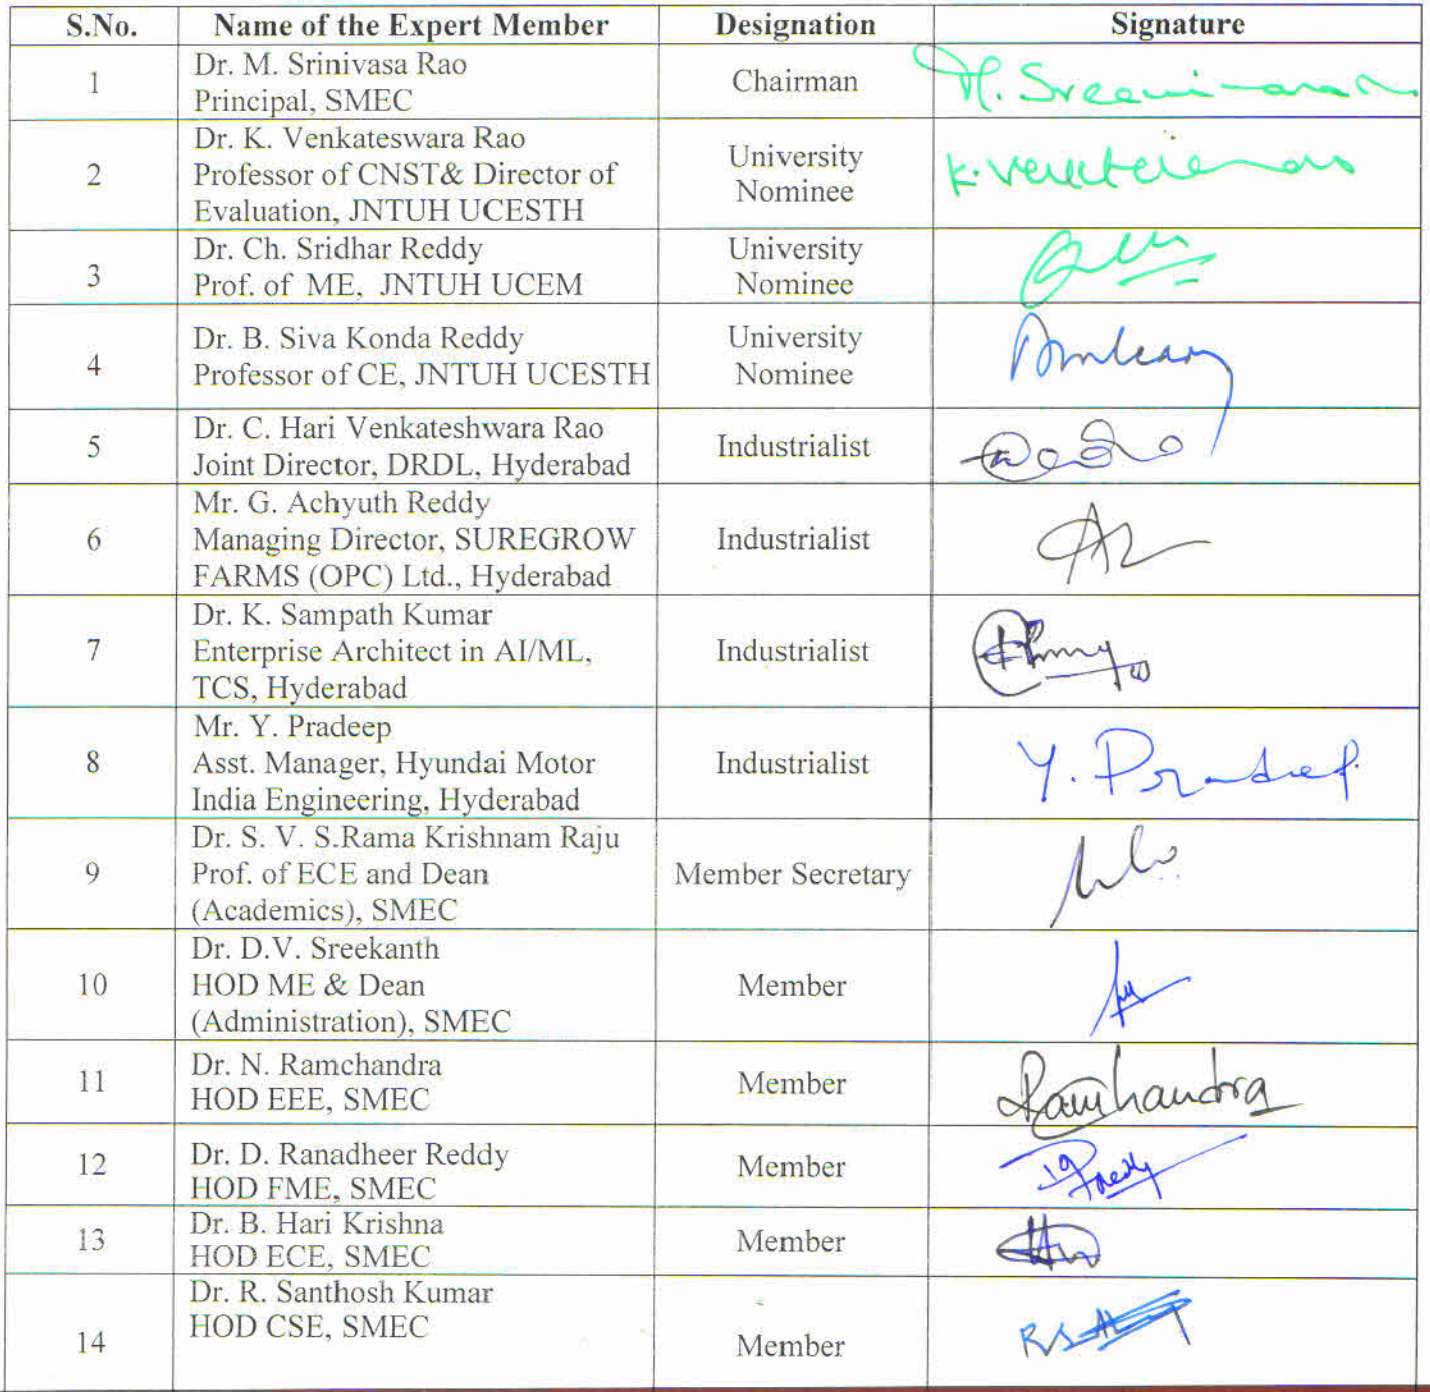 S.No. Name of the Expert Member Designation Signature
1 Dr. M. Srinivasa Rao
Principal, SMEC Chairman
2 Dr. K. Venkateswara Rao
Professor of CNST& Director of
Evaluation, JNTUH UCESTH University
Nominee
3 Dr. Ch. Sridhar Reddy
Prof. of ME, JNTUH UCEM University
Nominee
4 Dr. B. Siva Konda Reddy
Professor of CE, JNTUH UCESTH University
Nominee
5 Dr. C. Hari Venkateshwara Rao
Joint Director, DRDL, Hyderabad Industrialist
6 Mr. G. Achyuth Reddy
Managing Director, SUREGROW
FARMS (OPC) Ltd., Hyderabad Industrialist
7 Dr. K. Sampath Kumar
Enterprise Architect in AI/ML,
TCS, Hyderabad Industrialist
8 Mr. Y. Pradeep
Asst. Manager, Hyundai Motor
India Engineering, Hyderabad Industrialist
Y. Pradeep
9 Dr. S. V. S.Rama Krishnam Raju
Prof. of ECE and Dean
(Academics), SMEC Member Secretary
10 Dr. D.V. Sreekanth
HOD ME & Dean
(Administration), SMEC Member
11 Dr. N. Ramchandra
HOD EEE, SMEC Member
Ramchandra
12 Dr. D. Ranadheer Reddy
HOD FME, SMEC Member
13 Dr. B. Hari Krishna
HOD ECE, SMEC Member
14 Dr. R. Santhosh Kumar
HOD CSE, SMEC Member